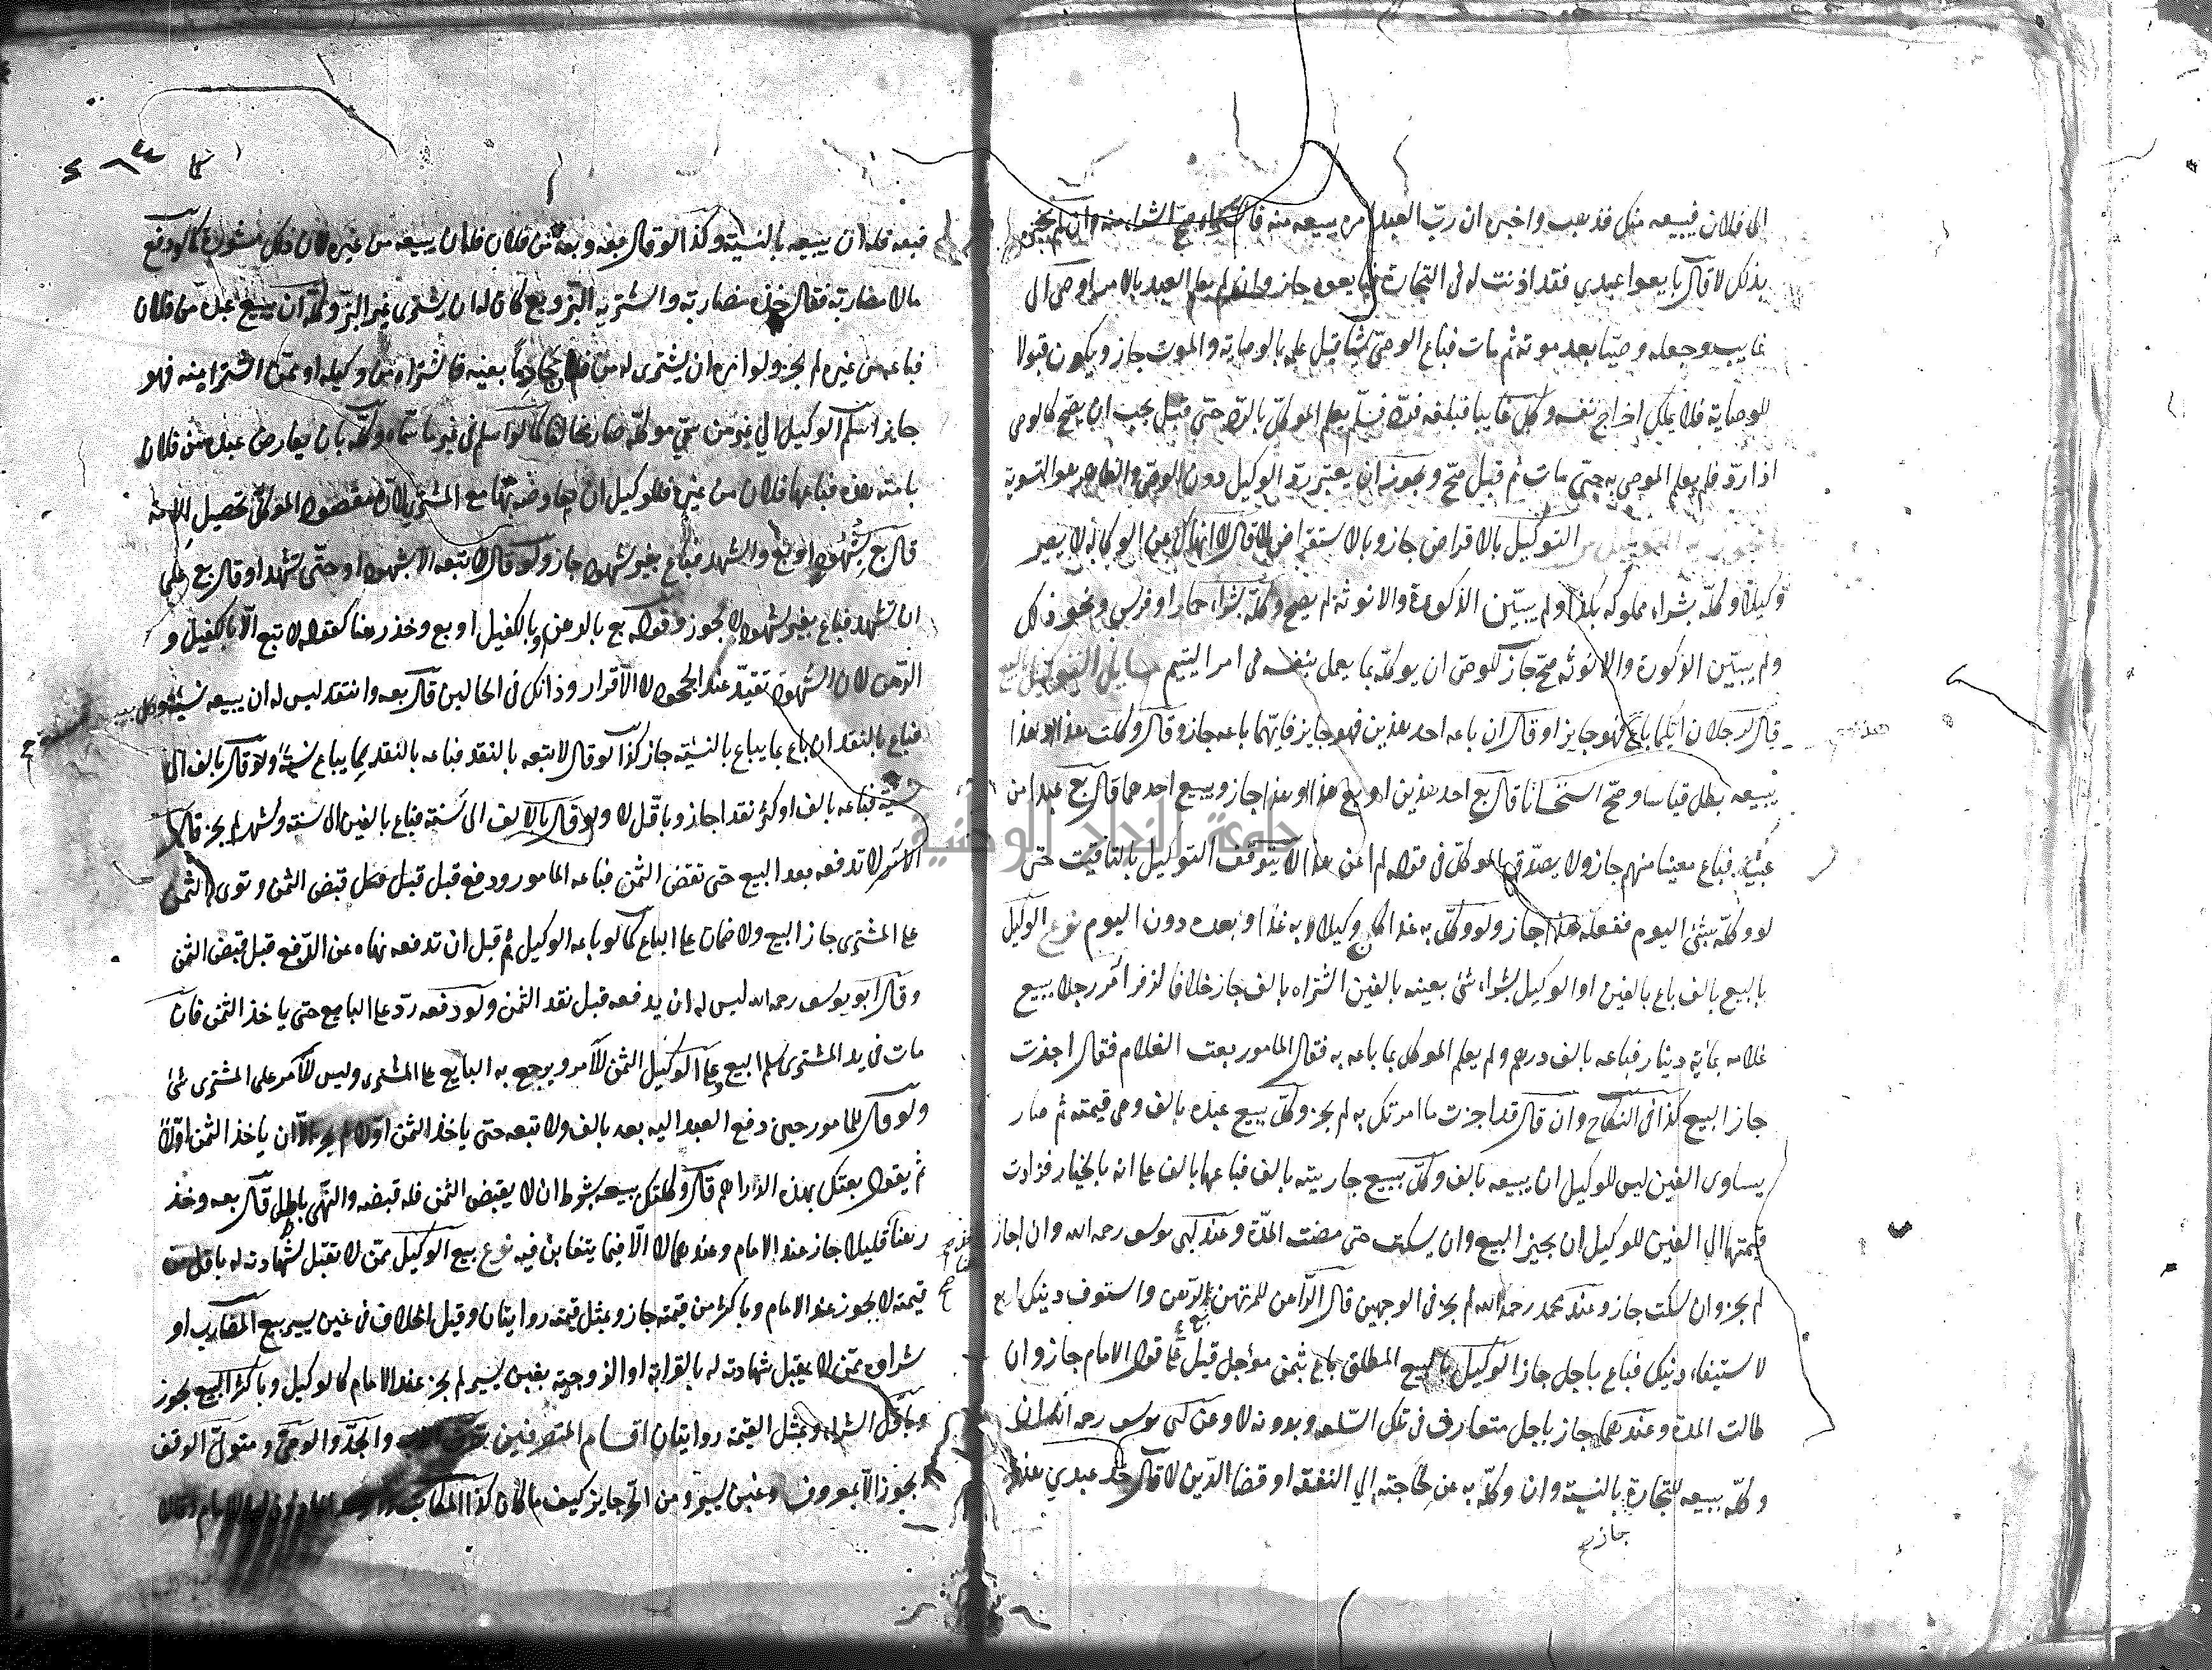 الى فلان فيبيعه منك فذهب واخبره ان ربّ العبد امره ببيعه منه فاشتراه صحّ الشراء منه وان لم يخبره
بذلك لا قال بايعوا عبدي فقد اذنت له فى التجارة فبايعوه جاز وان لم يعلم العبد بالامر اوصى الى
غايب وجعله وصيّا بعد موته ثم مات فباع الوصىّ شيأ قبل علمه بالوصاية والموت جاز ويكون قبولا
للوصاية فلا يملك اخراج نفسه وكّل غايبا فبلغه فردّه فلم يعلم الموكّل بالردّ حتى قبل يجب ان يصحّ كالوصى
اذا ردّ فلم يعلم الموصى به حتى مات ثم قبل صحّ ويجوز ان يعتبر ردّ الوكيل دون الوصىّ والظاهر هو التسوية
التوكيل بالاقراض جاز وبالاستقراض لا قال لا انهاك عن الوكالة لا يصير
وكيلا وكّله بشراء مملوكه بكذا ولم يبيّن الذكورة والانوثة لم يصح وكّله بشراء حمار او فرس ونحو ذلك
ولم يبيّن الذكورة والانوثه صحّ جاز للوصىّ ان يوكّله بما يعمل بنفسه فى امر اليتيم مسايل التوكيل بالبيع
قال لرجلان ايّكما باع فهو جايز او قال ان باعه احد هذين فهو جايز فايّهما باعه جاز وقال وكلت هذا او هذا
ببيعه بطل قياسا وصحّ استحسانا قال بع احد هذين او بع هذا او هذا جاز وبيع احدهما قال بع عبدا من
عبيدى فباع معينا منهم جاز ولا يصدّق الموكل فى قوله لم اعن هذا لا يتوقف التوكيل بالتاقيت حتى
لو وكّله بشئ اليوم ففعله غدا جاز ولو وكّل به غدا كان وكيلا به غدا وبعده دون اليوم نوع الوكيل
بالبيع بالف باع بالفين او الوكيل بشراء شئ بعينه بالفين اشتراه بالف جاز خلافا لزفر امر رجلا ببيع
غلامه بماية دينار فباعه بالف درهم ولم يعلم الموكل بما باعه به فقال المامور بعت الغلام فقال اجزت
جاز البيع كذا فى النكاح وان قال قد اجزت ما امرتك به لم يجز وكّل ببيع عبده بالف وهى قيمته ثم صار
يساوى الفين ليس للوكيل ان يبيعه بالف وكّل ببيع جاريته بالف فباعها بالف على انه بالخيار فزادت
قيمتها الى الفين للوكيل ان يجيز البيع وان يسكت حتى مضت المدّة وعند ابى يوسف رحمه الله وان اجاز
لم يجز وان سكت جاز وعند محمد رحمه الله لم يجز فى الوجهين قال الرّاهن للمرتهن بع الرّهن واستوف دينك او بع
لاستيفاء دينك فباع باجل جاز الوكيل بالبيع المطلق باع بثمن مؤجل قيل على قول الامام جاز وان
طالت المدة وعندهما جاز باجل متعارف فى تلك السّلعه وبدونه لا وعن ابى يوسف رحمه الله ان
وكّله ببيعه للتجارة بالنسيئة وان وكّله به عن حاجته الى النفقه او قضا الدّين لا قال خذ عبدي هذا
جاز
فبعه فله ان يبيعه بالنسيئة وكذا لو قال بعه وبعه من فلان فله ان يبيعه من غيره لان ذلك مشورة كما لو دفع
مالا مضاربة فقال خذه مضاربة واشتر به البزّ وبع كان له ان يشترى غير البزّ وكّله ان يبيع عبده من فلان
فباعه من غيره لم يجز ولو امره ان يشترى له من فلان خادما بعينه فاشتراه من وكيله او ممّن اشتراه منه فهو
جايز اسلم الوكيل الى غير من سمّى موكّله صار مخالفا كما لو اسلم فى غير ما سمّاه وكّله بان يعارض عبده من فلان
بامته هذه فباعها فلان من غيره فللوكيل ان يعاوضه بها مع المشترى لانّ مقصود الموكّل تحصيل الامة
قال بع بشهود او بع واشهد فباع بغير شهود جاز ولو قال لا تبعه الا بشهود او حتّى تشهد او قال بع على
ان تشهد فباع بغير شهود لا يجوز وقوله بع بالرهن وبالكفيل او بع وخذ رهنا كقوله لا تبع الّا بالكفيل و
الرّهن لان الشهود تقيّد عند الجحود لا الاقرار وذانك فى الحالين قال بعه وانتقد ليس له ان يبيعه نسيئة وكل ببيعه
فباع بالنقد ان باع بما يباع بالنسيئة جاز كذا لو قال لا تبعه بالنقد فباعه بالنقد بما يباع نسيئة ولو قال بالف الى
نسيئة فباعه بالف او اكثر نقدا جاز وباقل لا ولو قال بالالف الى سنة فباع بالفين الى سنة وشهر لم يجز قال
الآمر لا تدفعه بعد البيع حتى تقبض الثمن فباعه المامور ودفع قبل قبض الثمن وتوى الثمن
على المشترى جاز البيع ولا ضمان على البايع كما لو باعه الوكيل ثم قبل ان تدفعه نهاه عن الدّفع قبل قبض الثمن
وقال ابو يوسف رحمه الله ليس له ان يدفعه قبل نقد الثمن ولو دفعه ردّ على البايع حتى ياخذ الثمن فان
مات فى يد المشترى سلم البيع وعلى الوكيل الثمن للآمر ويرجع به البايع على المشترى وليس للآمر على المشترى شئ
ولو قال للمامور حين دفع العبد اليه بعه بالف ولا تبعه حتى ياخذ الثمن اوّلا لم يجز الّا ان ياخذ الثمن اوّلا
ثم يقول بعتك بهذه الدّراهم قال وكلتك ببيعه بشرط ان لا يقبض الثمن فله قبضه والنّهى باطل قال بعه وخذ
رهنا قليلا جاز عند الامام وعندهما لا الّا فيما يتغابن فيه نوع بيع الوكيل ممّن لا تقبل شهادته له باقل من
قيمته لا يجوز عند الامام وباكثر من قيمته جاز وبمثل قيمته روايتان وقيل الخلاف فى غبن يسير بيع المضارب او
شراؤه ممّن لا يقبل شهادته له بالقرابة او الزوجية بغبن يسير لم يجز عند الامام كالوكيل وباكثر البيع يجوز
وباقل الشراء وبمثل القيمة روايتان اقسام المتصرفين الاب والجدّ والوصىّ ومتولّى الوقف
يجوز الّا بمعروف وغبن يسير ومن الحرّ جايز كيف ما كان كذا المكاتب
جامعة النجاح الوطنية